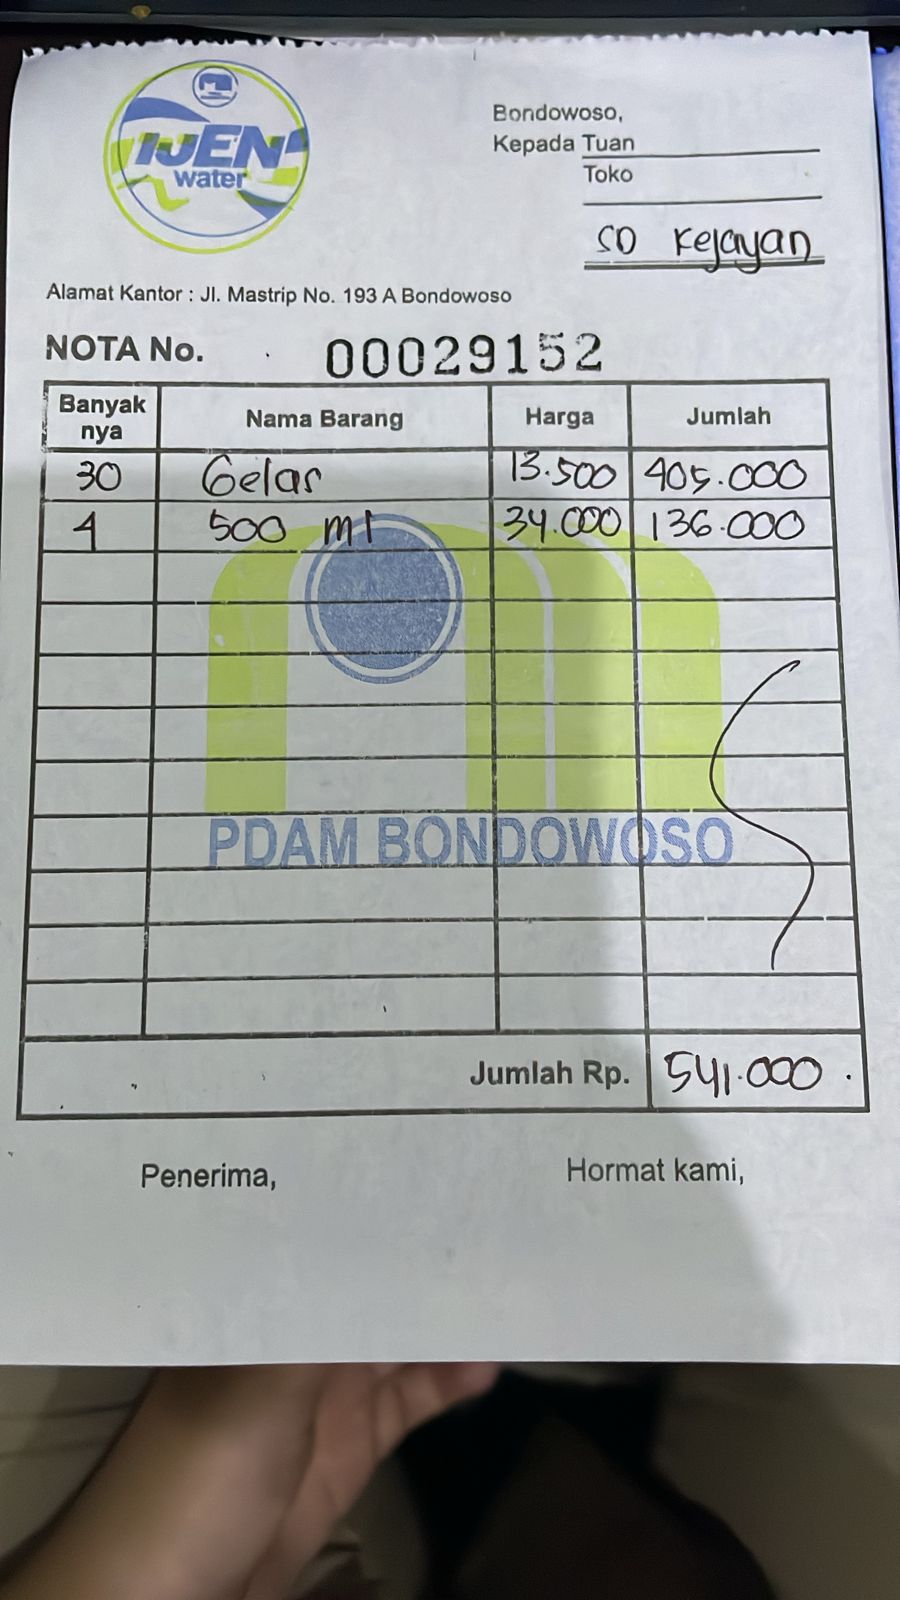 IJEN
water
Bondowoso,
Kepada Tuan
Toko
SD Kejayan
Alamat Kantor : Jl. Mastrip No. 193 A Bondowoso
NOTA No. 00029152
Banyak nya Nama Barang Harga Jumlah
30 Gelas 13.500 405.000
4 500 ml 34.000 136.000
PDAM BONDOWOSO
Jumlah Rp. 541.000
Penerima, Hormat kami,